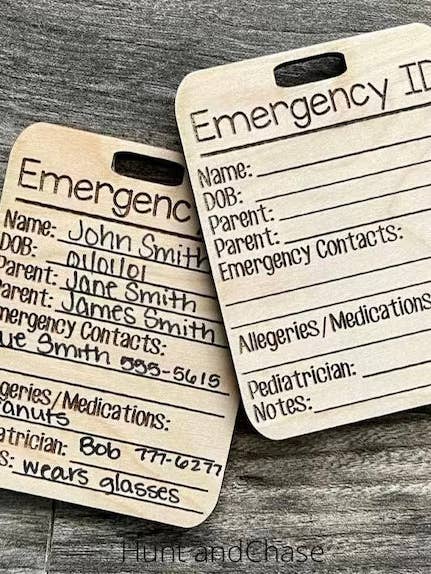 Emergency ID
Name:
DOB:
Parent:
Parent:
Emergency Contacts:
Allegeries/Medications
Pediatrician:
Notes:
Emergenc
Name: John Smith
DOB: 01/01/01
Parent: Jane Smith
Parent: James Smith
mergency Contacts:
ue Smith 555-5615
geries/Medications:
eanuts
atrician: Bob 777-6277
s: wears glasses
Hunt andChase